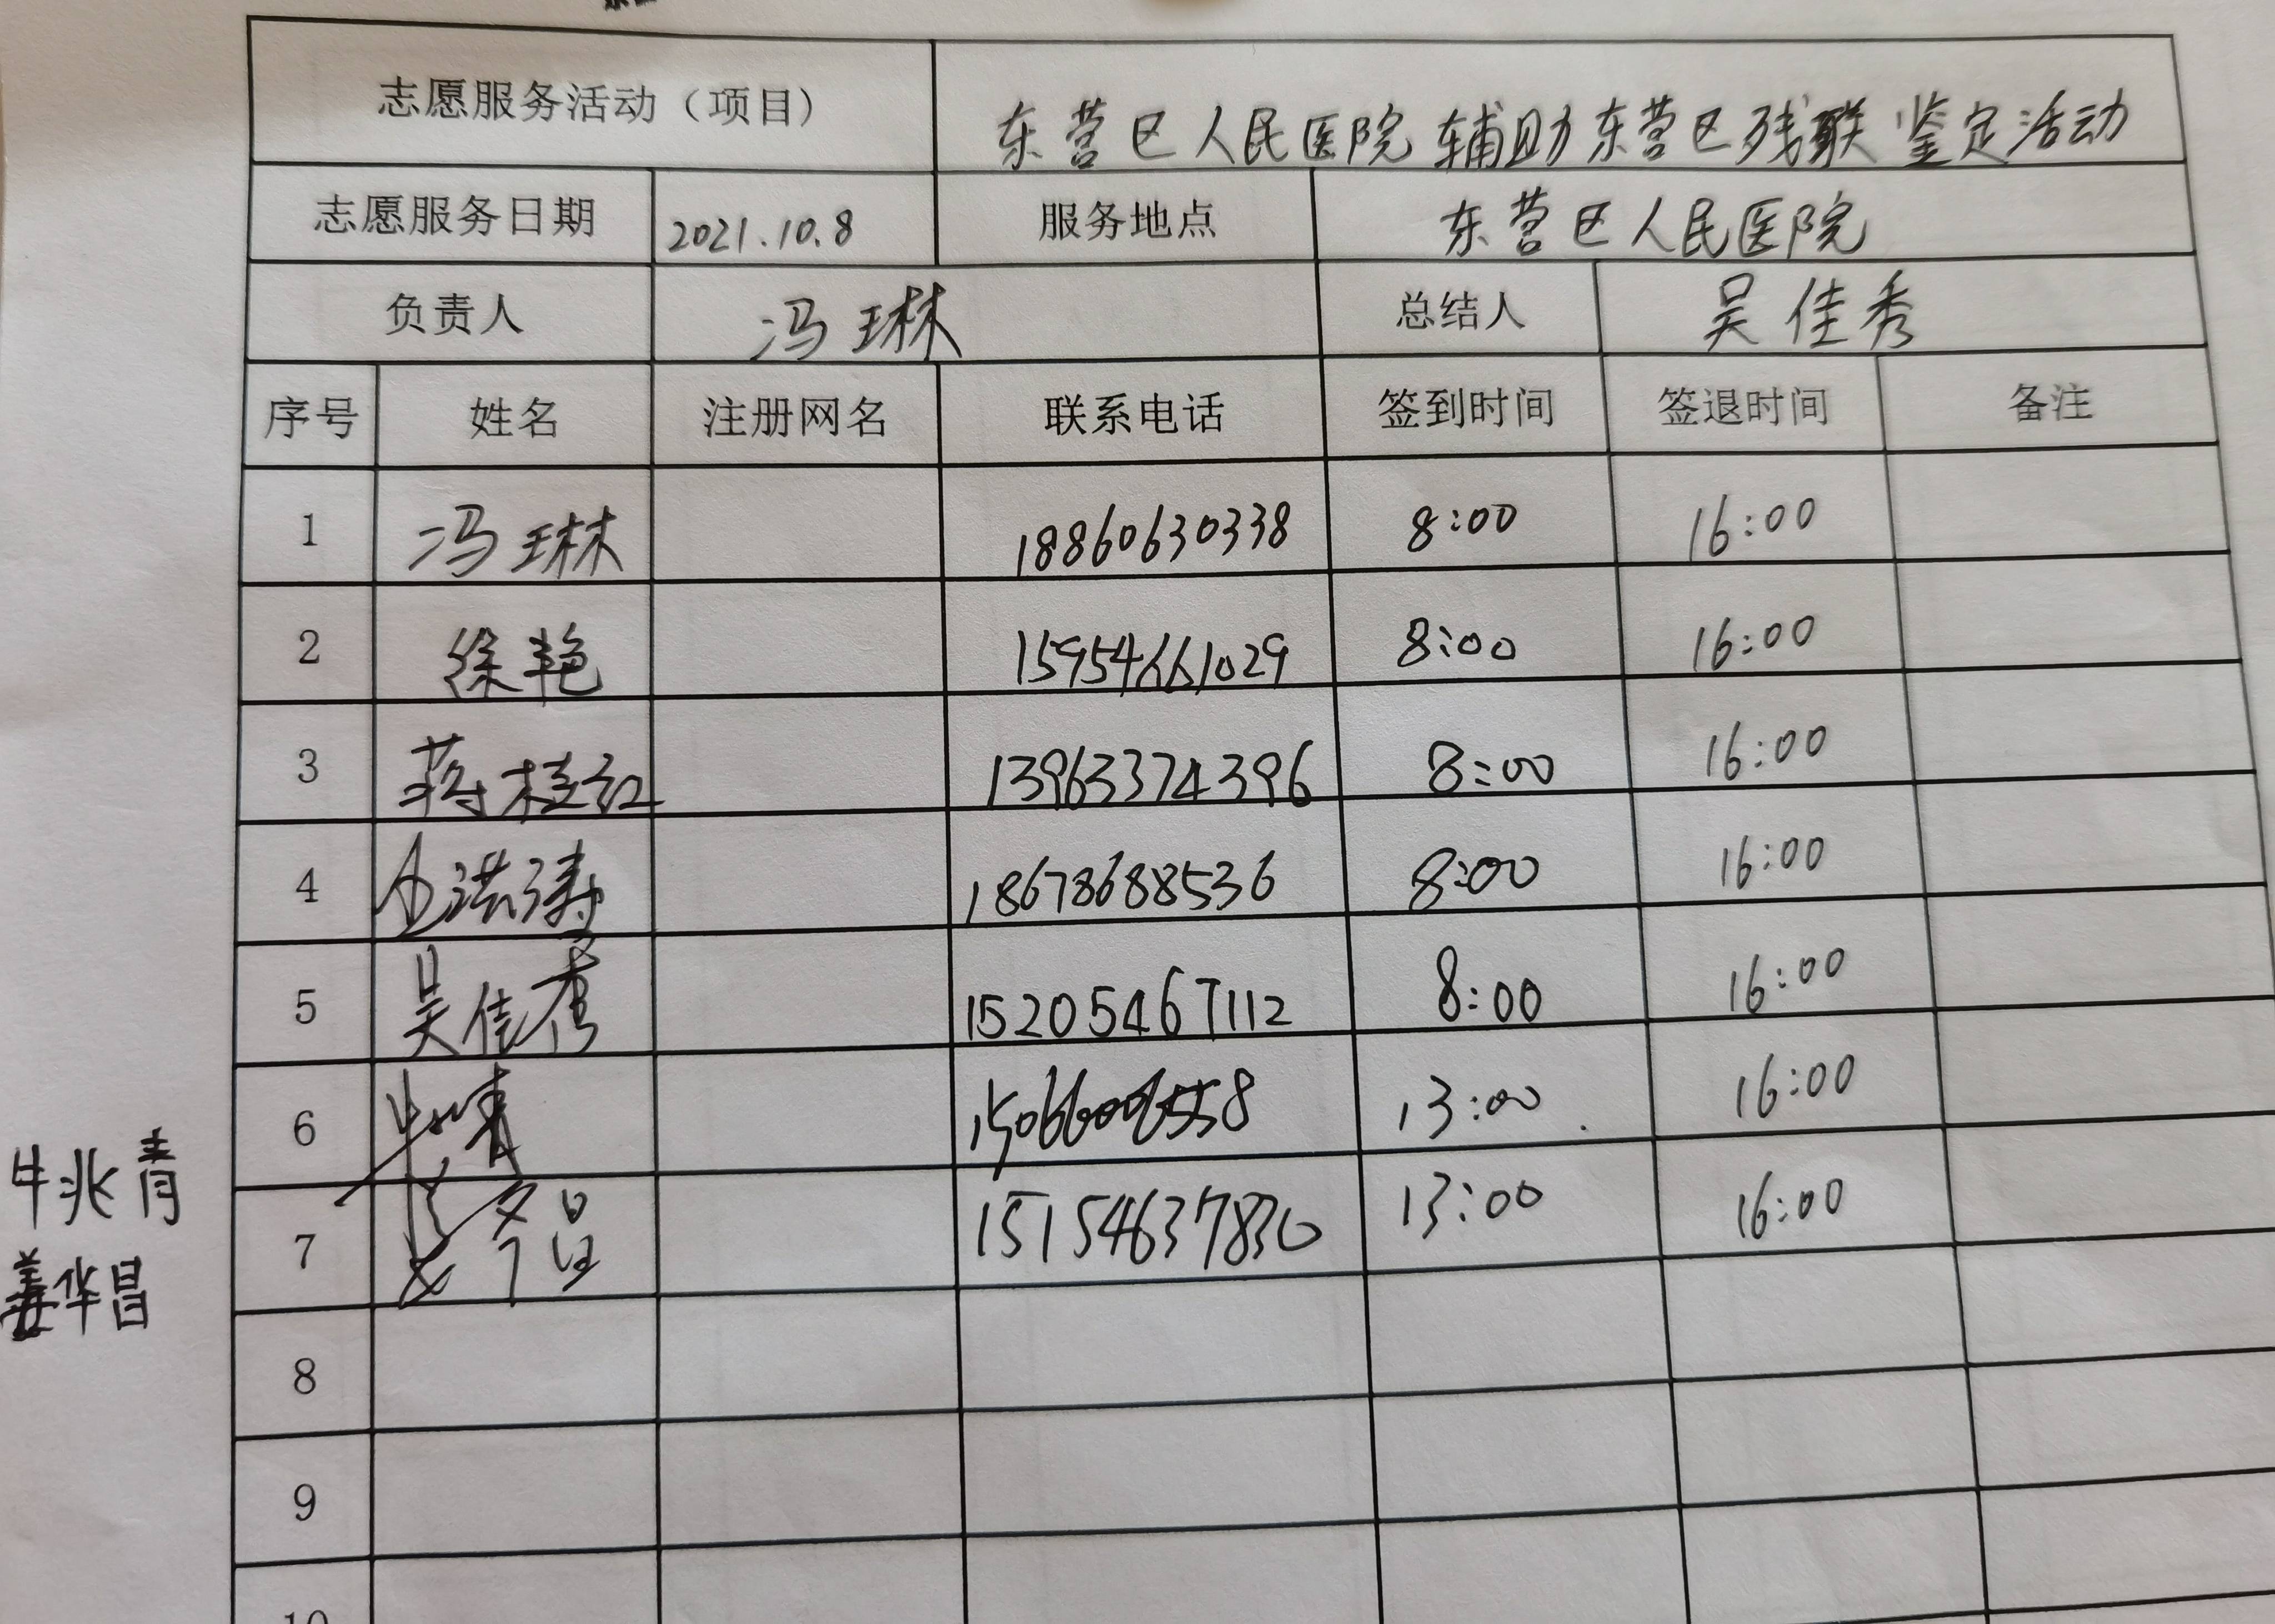 志愿服务活动（项目） 东营区人民医院辅助东营区残联鉴定活动
志愿服务日期 2021.10.8 服务地点 东营区人民医院
负责人 冯琳 总结人 吴佳秀
序号 姓名 注册网名 联系电话 签到时间 签退时间 备注
1 冯琳 18860630338 8:00 16:00
2 徐艳 15954661029 8:00 16:00
3 蒋桂红 13963374396 8:00 16:00
4 洪涛 18678688536 8:00 16:00
5 吴佳秀 15205467112 8:00 16:00
6 13:00 16:00
牛兆青
7 15154637830 13:00 16:00
姜华昌
8
9
10